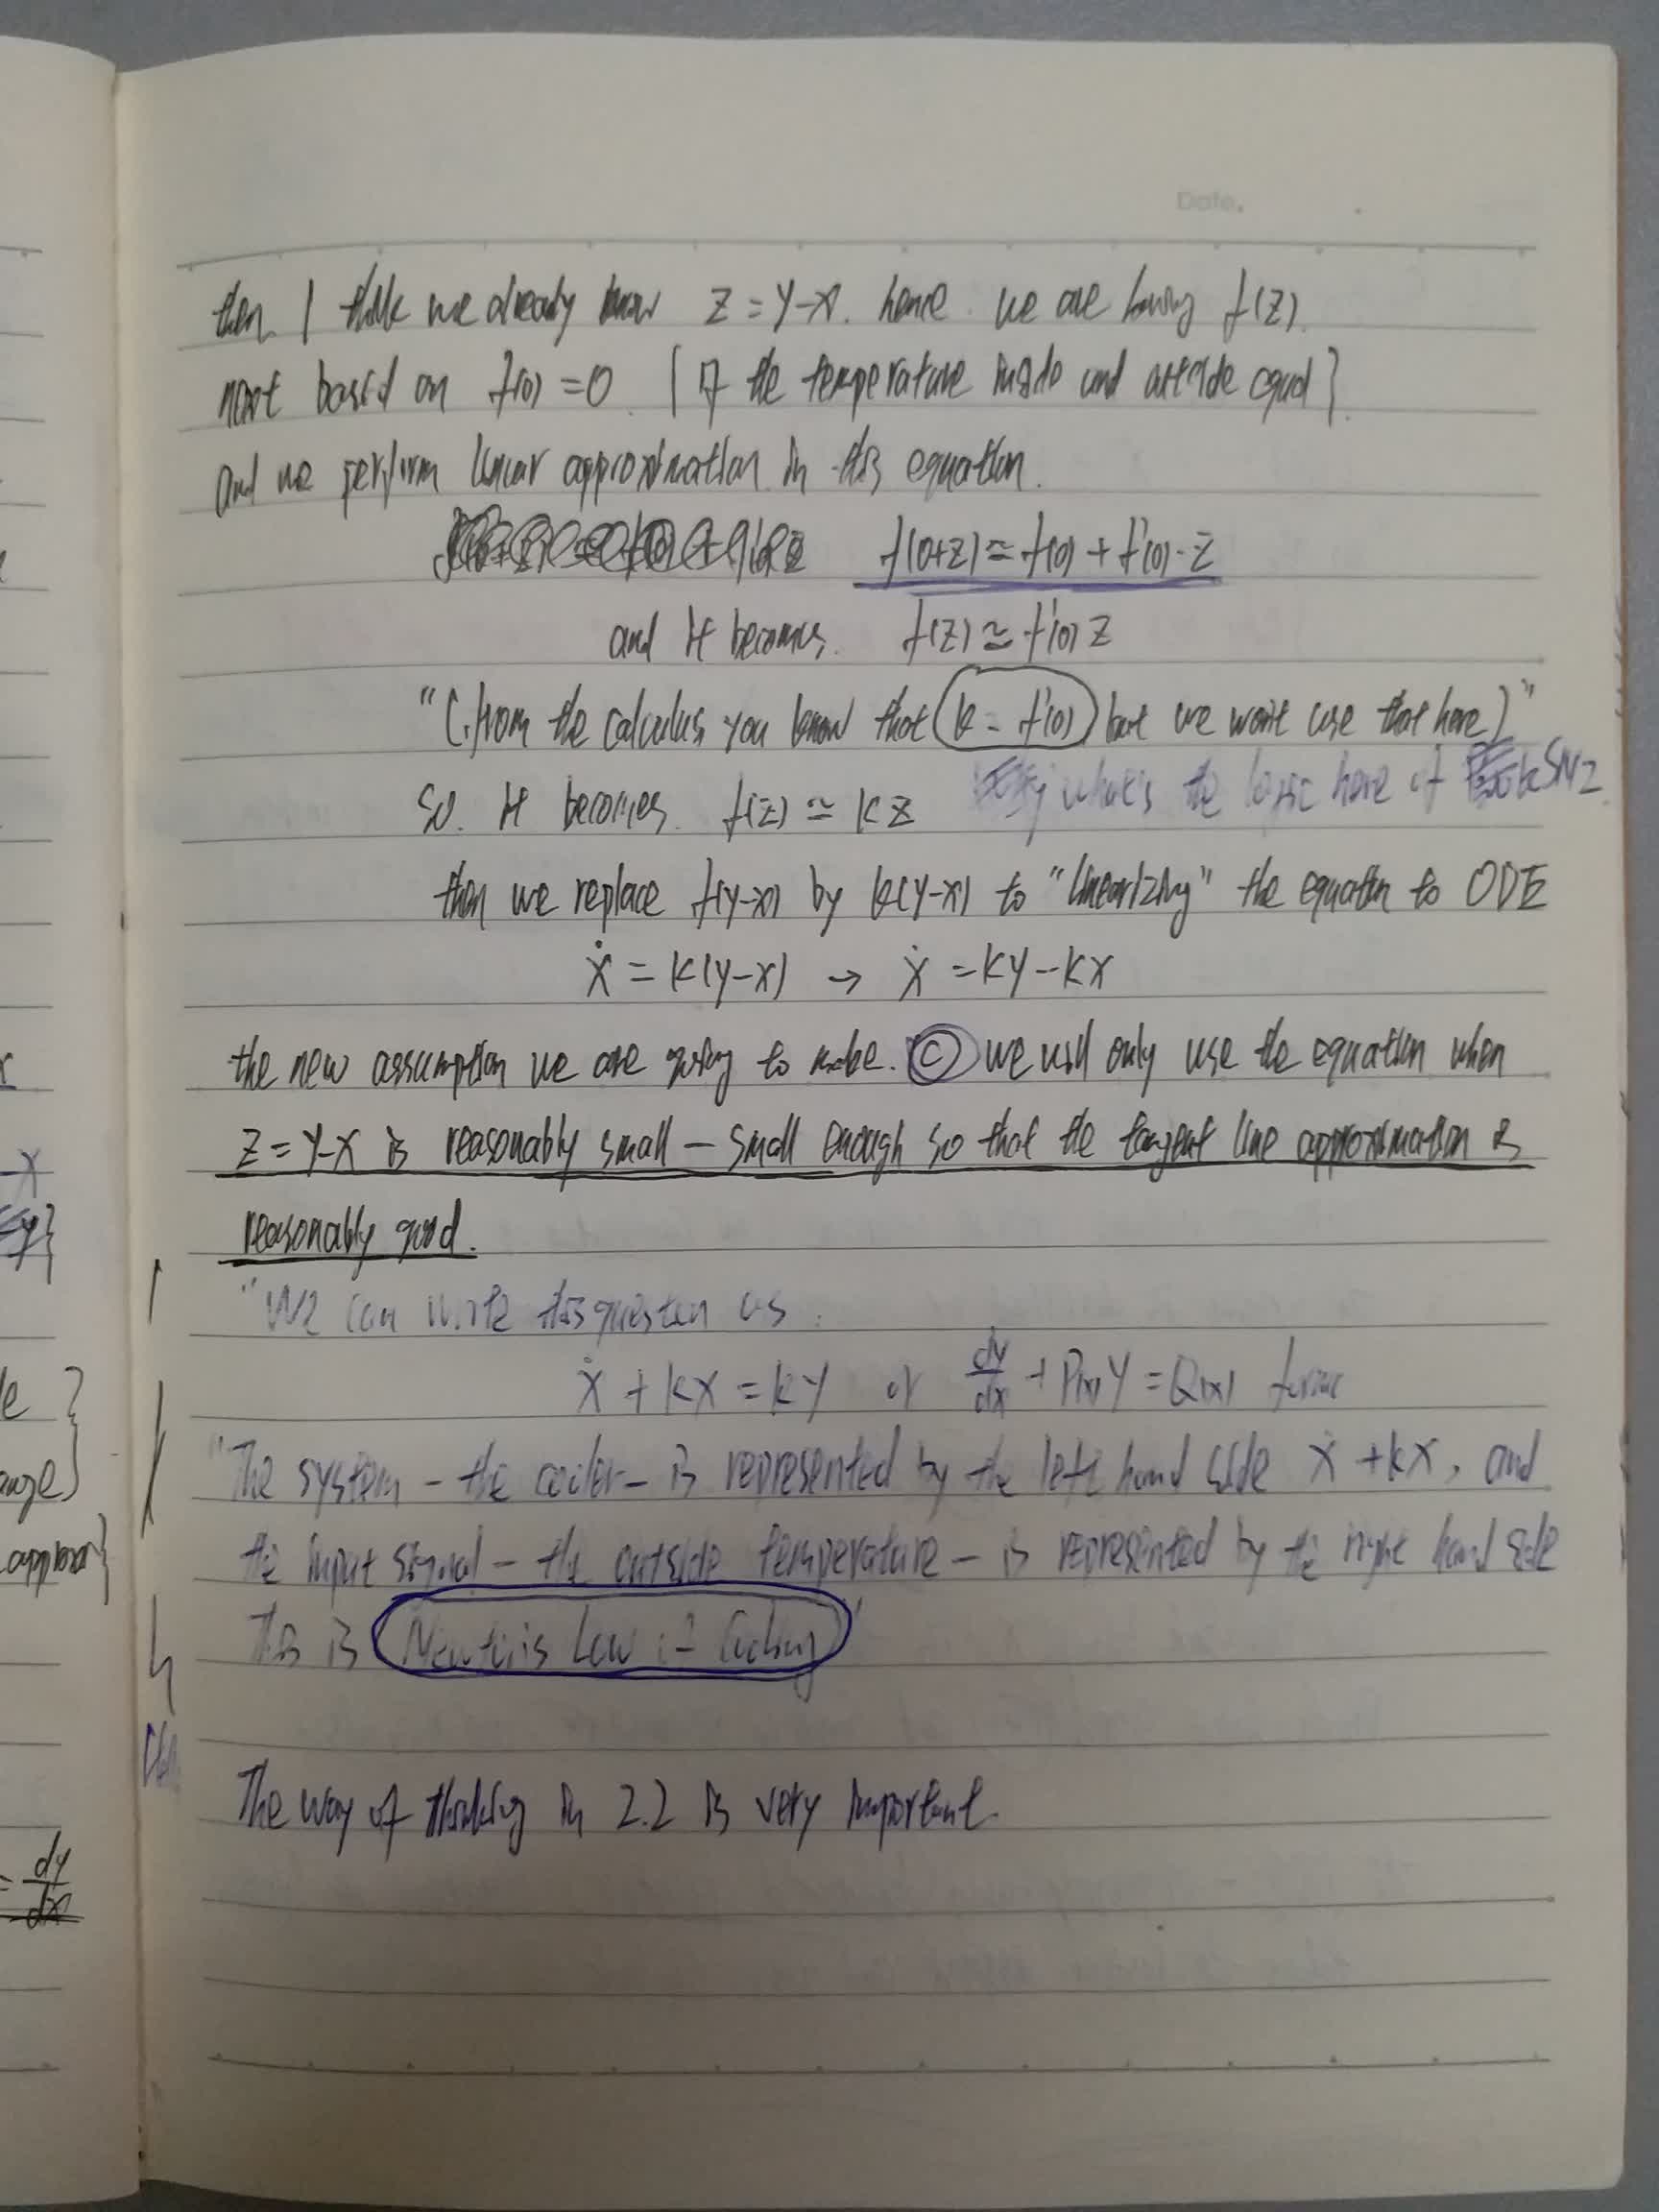 Date.
then I think we already know z = y-x. hence we are having f(z).
next based on f(0) = 0. [If the temperature inside and outside equal].
and we perform linear approximation in this equation.
f(0+z) ≃ f(0) + f'(0)·z
and it becomes. f(z) ≃ f'(0) z
"(from the calculus, you know that k = f'(0) but we won't use that here)"
So. it becomes. f(z) ≃ kz what's the logic here of
then we replace f(y-x) by k(y-x) to "linearizing" the equation to ODE
ẋ = k(y-x) → ẋ = ky-kx
the new assumption we are going to make. Ⓒ we will only use the equation when
z = y-x is reasonably small - small enough so that the tangent line approximation is
reasonably good.
"We can write this question as:
ẋ + kx = ky or dy/dx + P(x)y = Q(x) form
"The system - the cooler - is represented by the left hand side ẋ + kx, and
the input signal - the outside temperature - is represented by the right hand side
This is Newton's Law of Cooling"
The way of thinking in 2.2 is very important.
-x
y}
le }
ange)
approx}
= dy/dx